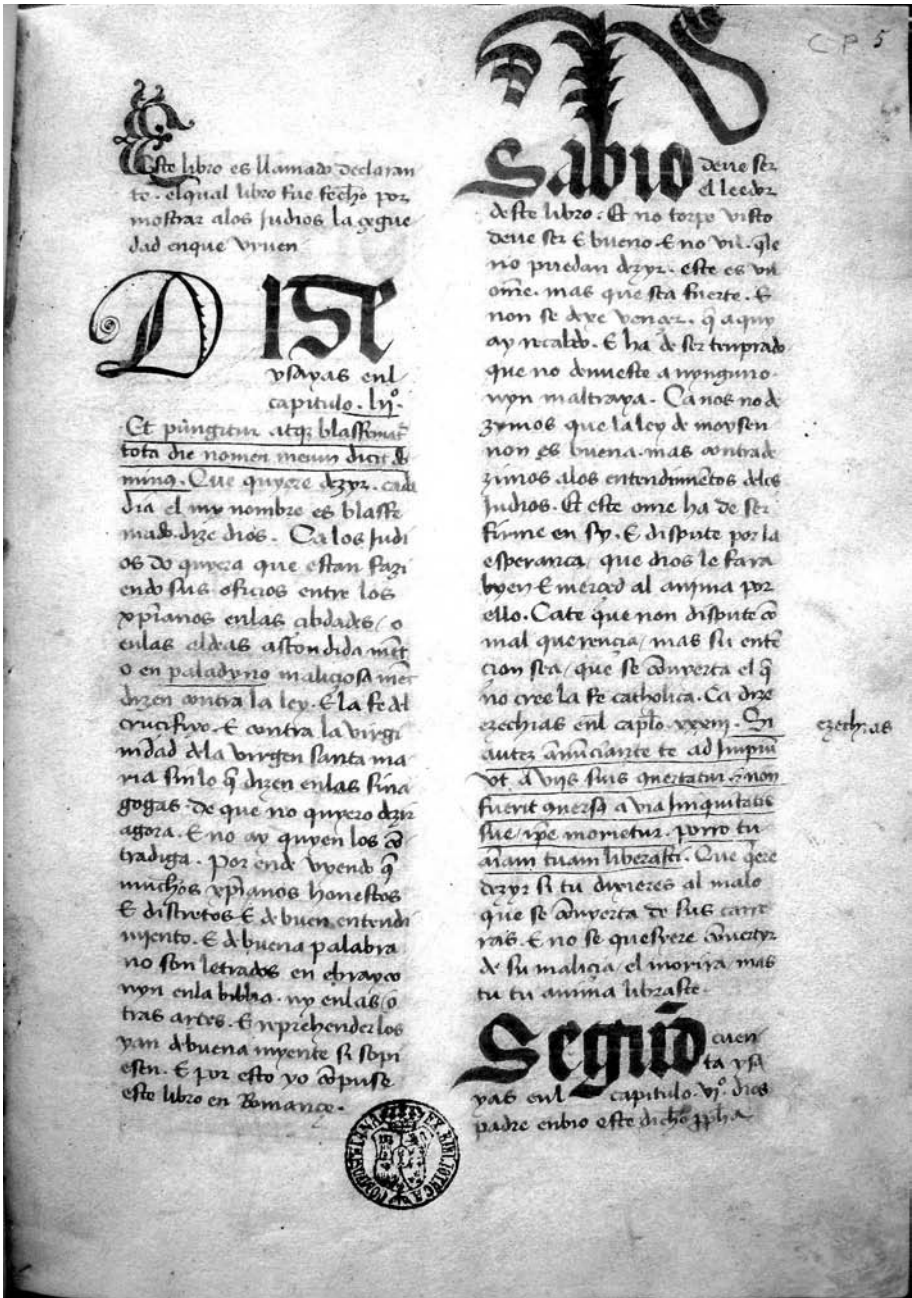 C P 5
Este libro es llamado declaran
te. elqual libro fue fecho por
mostrar alos Judios la çegue
dad enque viuen
DISE
ysayas enl
capitulo. lijº.
Et pūngitur atqꝫ blasfemat̄
tota die nomen meum dicit do
minus. Que quyere dezyr. cada
dia el my nombre es blasfe
mado. dize dios. Ca los Judi
os do quyera que estan fazi
endo sus ofiçios entre los
xp̄ianos enlas cibdades/ o
enlas aldeas ascondida mēt
o en paladyno maliçiosa mēt
dizen contra la ley. E la fe del
crucifixo. E contra la virgi
nidad dela virgen santa ma
ria sinlo q̄ dizen enlas sina
gogas. de que no quyero dezir
agora. E no ay quyen los cō
tradiga. Por ende veyendo q̄
muchos xp̄ianos honestos
E discretos E de buen entendi
miento. E de buena palabra
no son letrados en ebrayco
nyn enla biblia. ny enlas o
tras artes. E reprehenderlos
yan de buena myente si sopi
esen. E por esto yo cōpuse
este libro en Romançe.
Sabio deue ser
el leedor
deste libro. Et no torpe visto
deue ser E bueno. E no vil. q̄le
no puedan dezyr. este es vil
om̄e. mas que sea fuerte. E
non se dexe vençer. q̄ aquy
ay recabdo. E ha de ser tenprado
que no denueste a nynguno.
nyn maltraya. Ca nos no de
zymos que la ley de moysen
non es buena. mas contrade
zimos alos entendimētos delos
Judios. Et este ome ha de ser
firme en sy. E dispute por la
esperança/ que dios le fara
byen E merçed al anima por
ello. Cate que non dispute cō
mal querençia/ mas su entē
cion sea/ que se cōuerta el q̄
no cree la fe catholica. Ca dize
ezechias enl cap̄lo. xxxiij. Si
autez anūciante te ad Impiū
vt a vijs suis 9uertatur. ⁊ non
fuerit 9uersꝰ a via Iniquitatis
sue/ ip̄e morietur. porro tu
āīam tuam liberasti. Que q̄ere
dezyr si tu dixieres al malo
que se cōuyerta de sus carre
ras. E no se quesyere cōuertyr
de su maliçia/ el morira/ mas
tu tu anima libraste.
ezechias
Segūd cuen
ta ysa
yas enl capitulo. vjº. dios
padre enbio este dicho pp̄ha
EX BIBLIOTHECA COMPOSTELLANA